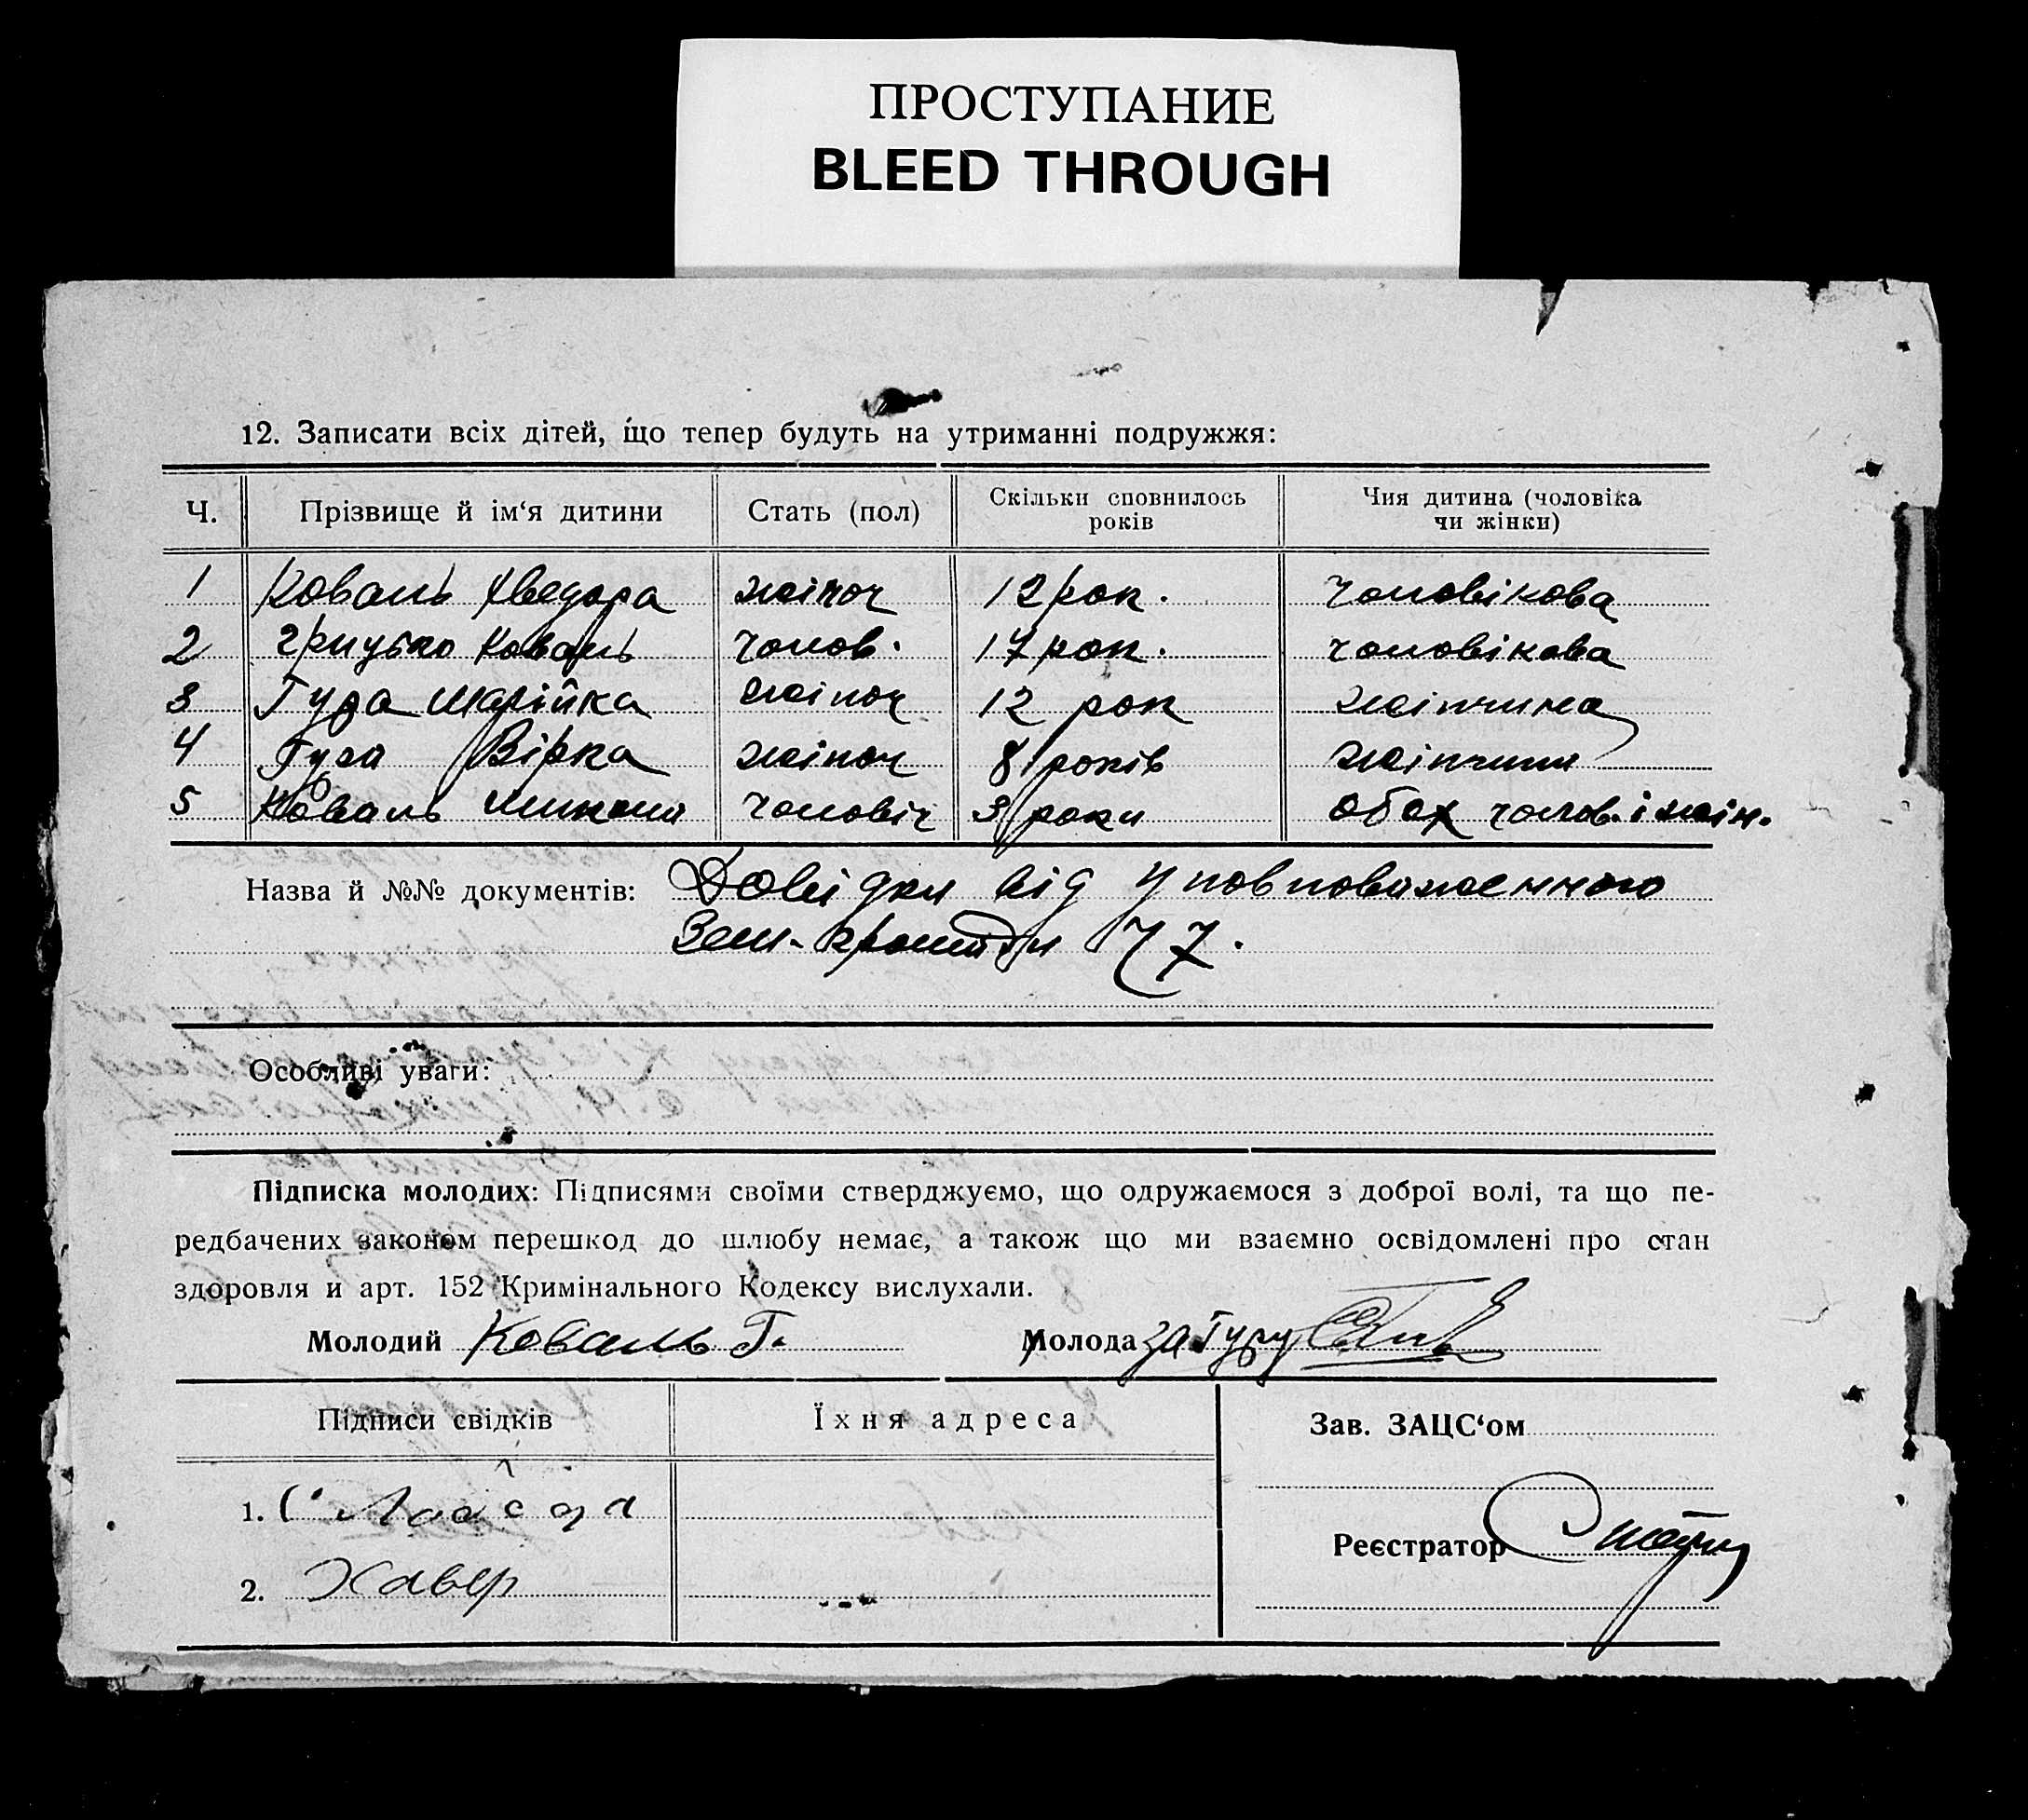 ПРОСТУПАНИЕ
BLEED THROUGH
12. Записати всіх дітей, що тепер будуть на утриманні подружжя:
Ч. Прізвище й ім‘я дитини Стать (пол) Скільки сповнилось років Чия дитина (чоловіка чи жінки)
1 Коваль Хведора жіноч 12 рок. чоловікова
2 Грицько Коваль чолов. 17 рок. чоловікова
3 Гура Марійка жіноч 12 рок жінчина
4 Гура Вірка жіноч 8 років жінчина
5 Коваль Микола чоловіч 3 роки обох чолов. і жін.
Назва й №№ документів: Довідки від уповноваженного
Зем. громади Ч 7.
Особливі уваги:
Підписка молодих: Підписями своїми стверджуємо, що одружаємося з доброї волі, та що пе-
редбачених законом перешкод до шлюбу немає, а також що ми взаємно освідомлені про стан
здоровля и арт. 152 Кримінального Кодексу вислухали.
Молодий Коваль Г. Молода за Гуру
Підписи свідків Їхня адреса Зав. ЗАЦС‘ом
1.
Реєстратор
2. Хавер